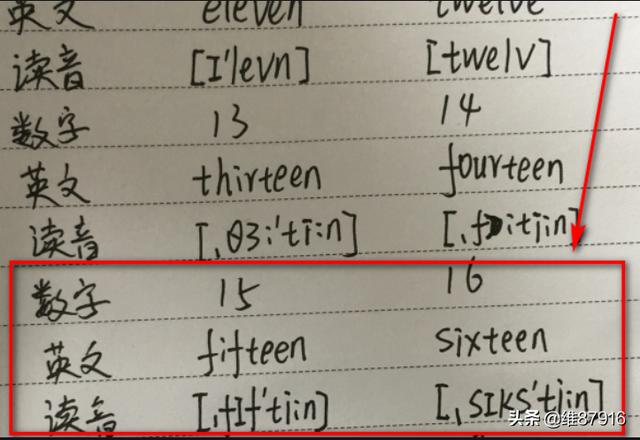 英文 eleven twelve
读音 [I'levn] [twelv]
数字 13 14
英文 thirteen fourteen
读音 [,θɜː'tiːn] [,fɔːtiːn]
数字 15 16
英文 fifteen sixteen
读音 [,fIf'tiːn] [,sIKS'tiːn]
头条 @维87916